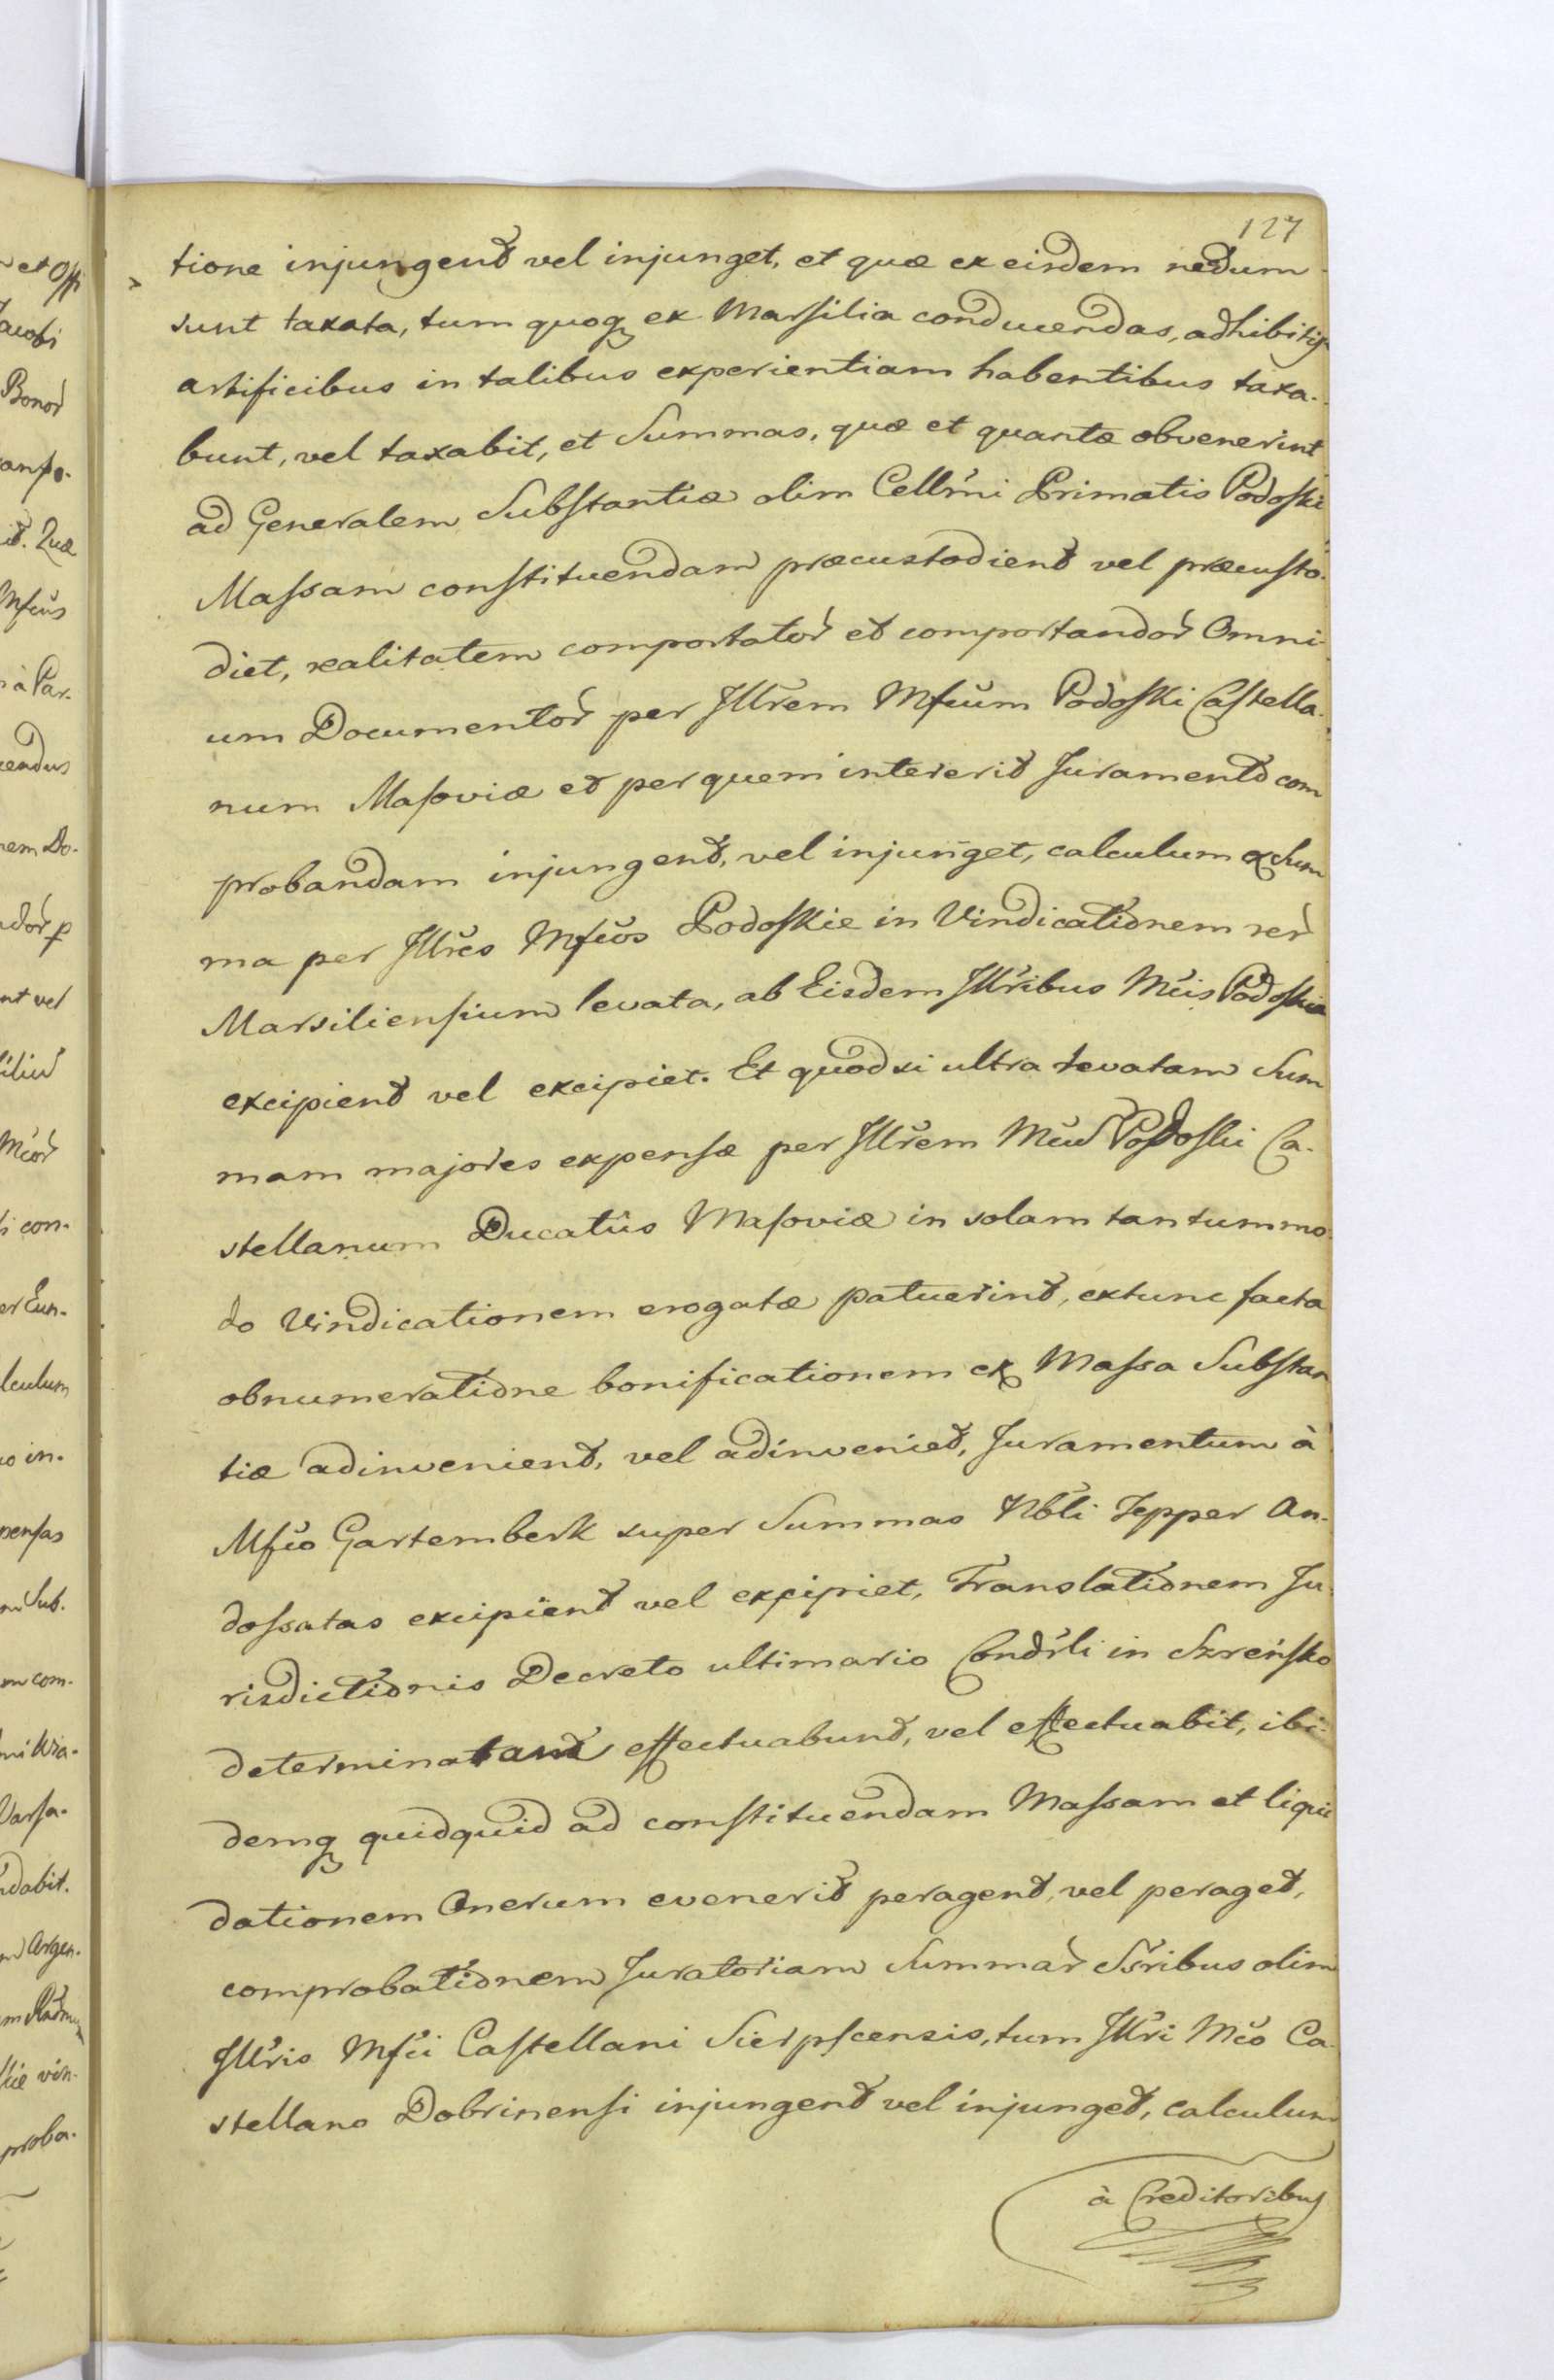 127
tione injungent vel injunget, et quæ ex eisdem nedum
sunt taxata, tum quoq ex Marsilia conducendas, adhibitis
artificibus in talibus experientiam habentibus taxa-
bunt, vel taxabit, et Summas, quæ et quantæ obvenerint
ad Generalem Substantiæ olim Cellsmi Primatis Podoski
Massam constituendam præcustodient vel præcusto-
diet, realitatem comportator et comportandor Omni-
um Documentor per Jllrem Mfcum Podoski Castella-
num Masoviæ et per quem intererit Juramento com
probandam injungent, vel injunget, calculum ex Sum
ma per Jllres Mfcos Podoskie in Vindicationem rer
Marsiliensium levata, ab Eisdem Jllribus Mcis Podoskie
excipient vel excipiet. Et quod si ultra levatam Sum
mam majores expensæ per Jllrem Mcum Podoski Ca-
stellanum Ducatûs Masoviæ in solam tantummo-
do Vindicationem erogatæ patuerint, extunc facta
obnumeratione bonificationem ex Massa Substan
tiæ adinvenient, vel adinveniet, Juramentum à
Mfco Gartemberk super Summas Nbli Tepper An-
dossatas excipient vel excipiet, Translationem Ju-
risdictionis Decreto ultimario Condrli in Szreńsko
determinatam effectuabunt, vel effectuabit, ibi-
demq quidquid ad constituendam Massam et liqui
dationem Onerum evenerit peragent, vel peraget,
comprobationem Juratoriam Summar Ssribus olim
Jllris Mfci Castellani Sierpscensis, tum Jllri Mco Ca-
stellano Dobrinensi injungent vel injunget, calculum
à Creditoribus